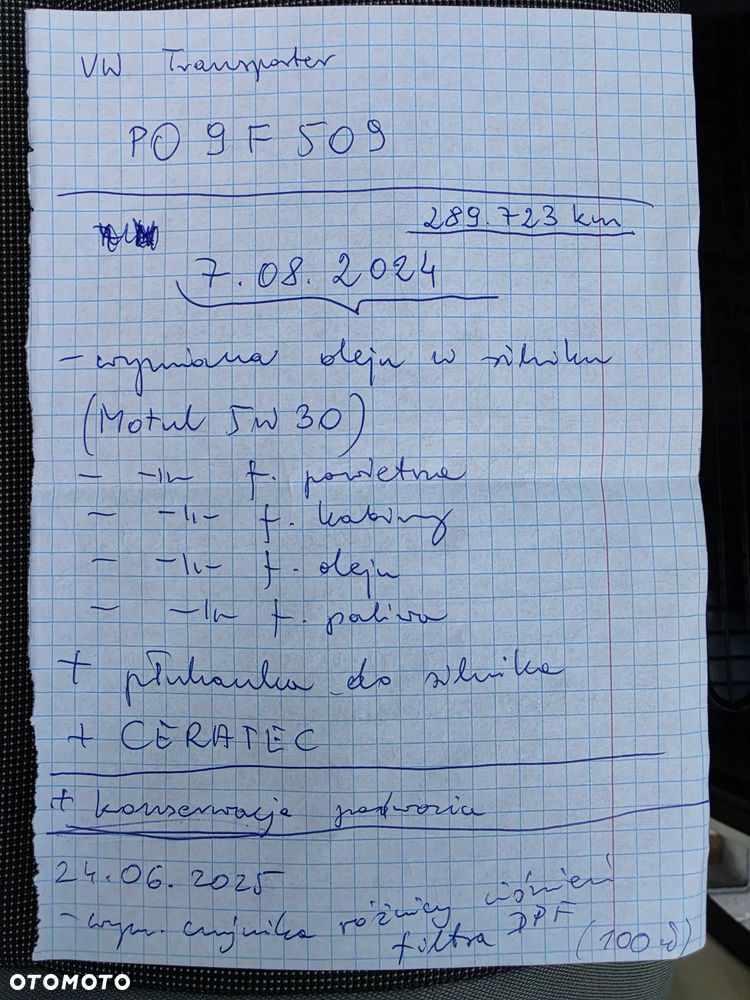 VW Transporter
PO 9F509
289.723 km
7.08.2024
- wymiana oleju w silniku
(Motul 5W30)
- -||- f. powietrza
- -||- f. kabiny
- -||- f. oleju
- -||- f. paliwa
+ płukanka do silnika
+ CERATEC
+ konserwacja podwozia
24.06.2025
- wym. czujnika różnicy ciśnień
filtra DPF (100 zł)
OTOMOTO